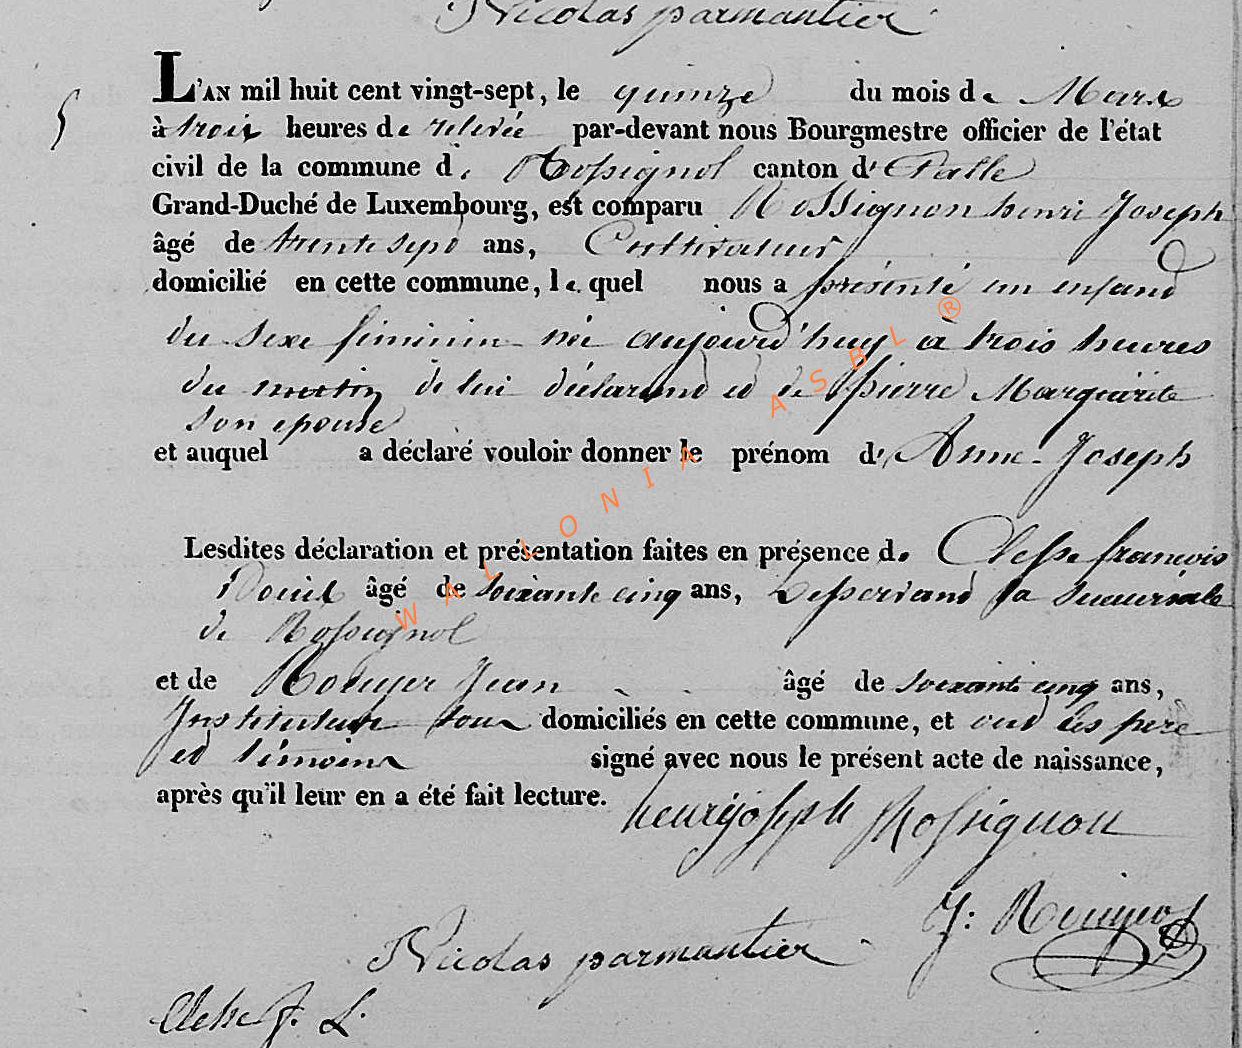 Nicolas parmantier
5
L'AN mil huit cent vingt-sept, le quinze du mois de Mars
à trois heures de relevée par-devant nous Bourgmestre officier de l'état
civil de la commune de Rossignol canton d'Etalle
Grand-Duché de Luxembourg, est comparu Rossignon henri Joseph
âgé de trente sept ans, Cultivateur
domicilié en cette commune, lequel nous a présenté un enfand
du sexe feminin née aujourd'huy à trois heures
du matin de lui déclarand et de pierre Marguerite
son epouse
et auquel a déclaré vouloir donner le prénom d'Anne-Joseph
Lesdites déclaration et présentation faites en présence de Clesse francois
Louis âgé de soixante cinq ans, Desservand la sucursale
de Rossignol
et de Rouyer Jean âgé de soixante cinq ans,
Instituteur tous domiciliés en cette commune, et ont les pere
et témoins signé avec nous le présent acte de naissance,
après qu'il leur en a été fait lecture. henry joseph Rossignon
J: Rouyer
Nicolas parmantier
Clesse f. L.
WALLONIA ASBL ®